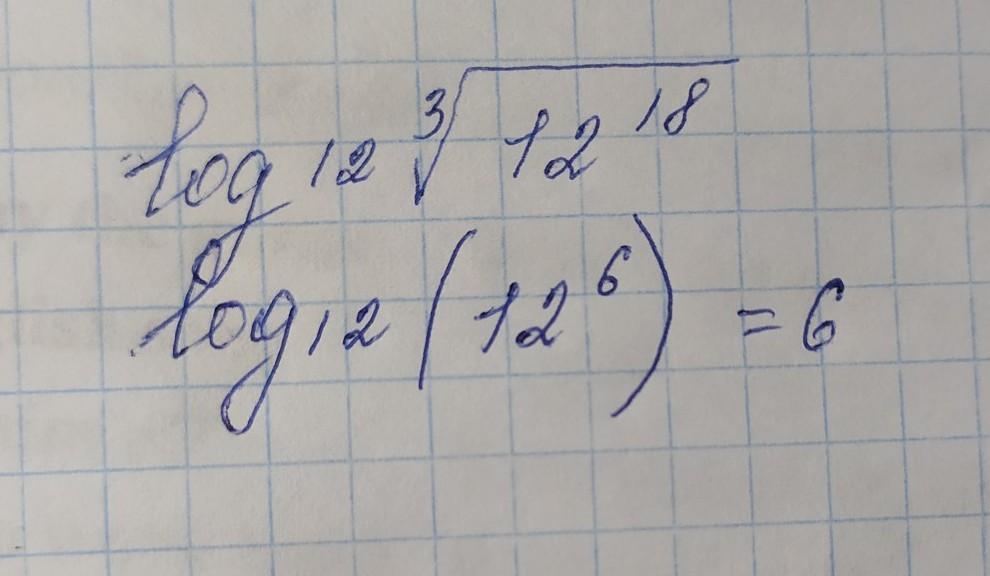 log₁₂ ∛(12¹⁸)
log₁₂ (12⁶) = 6